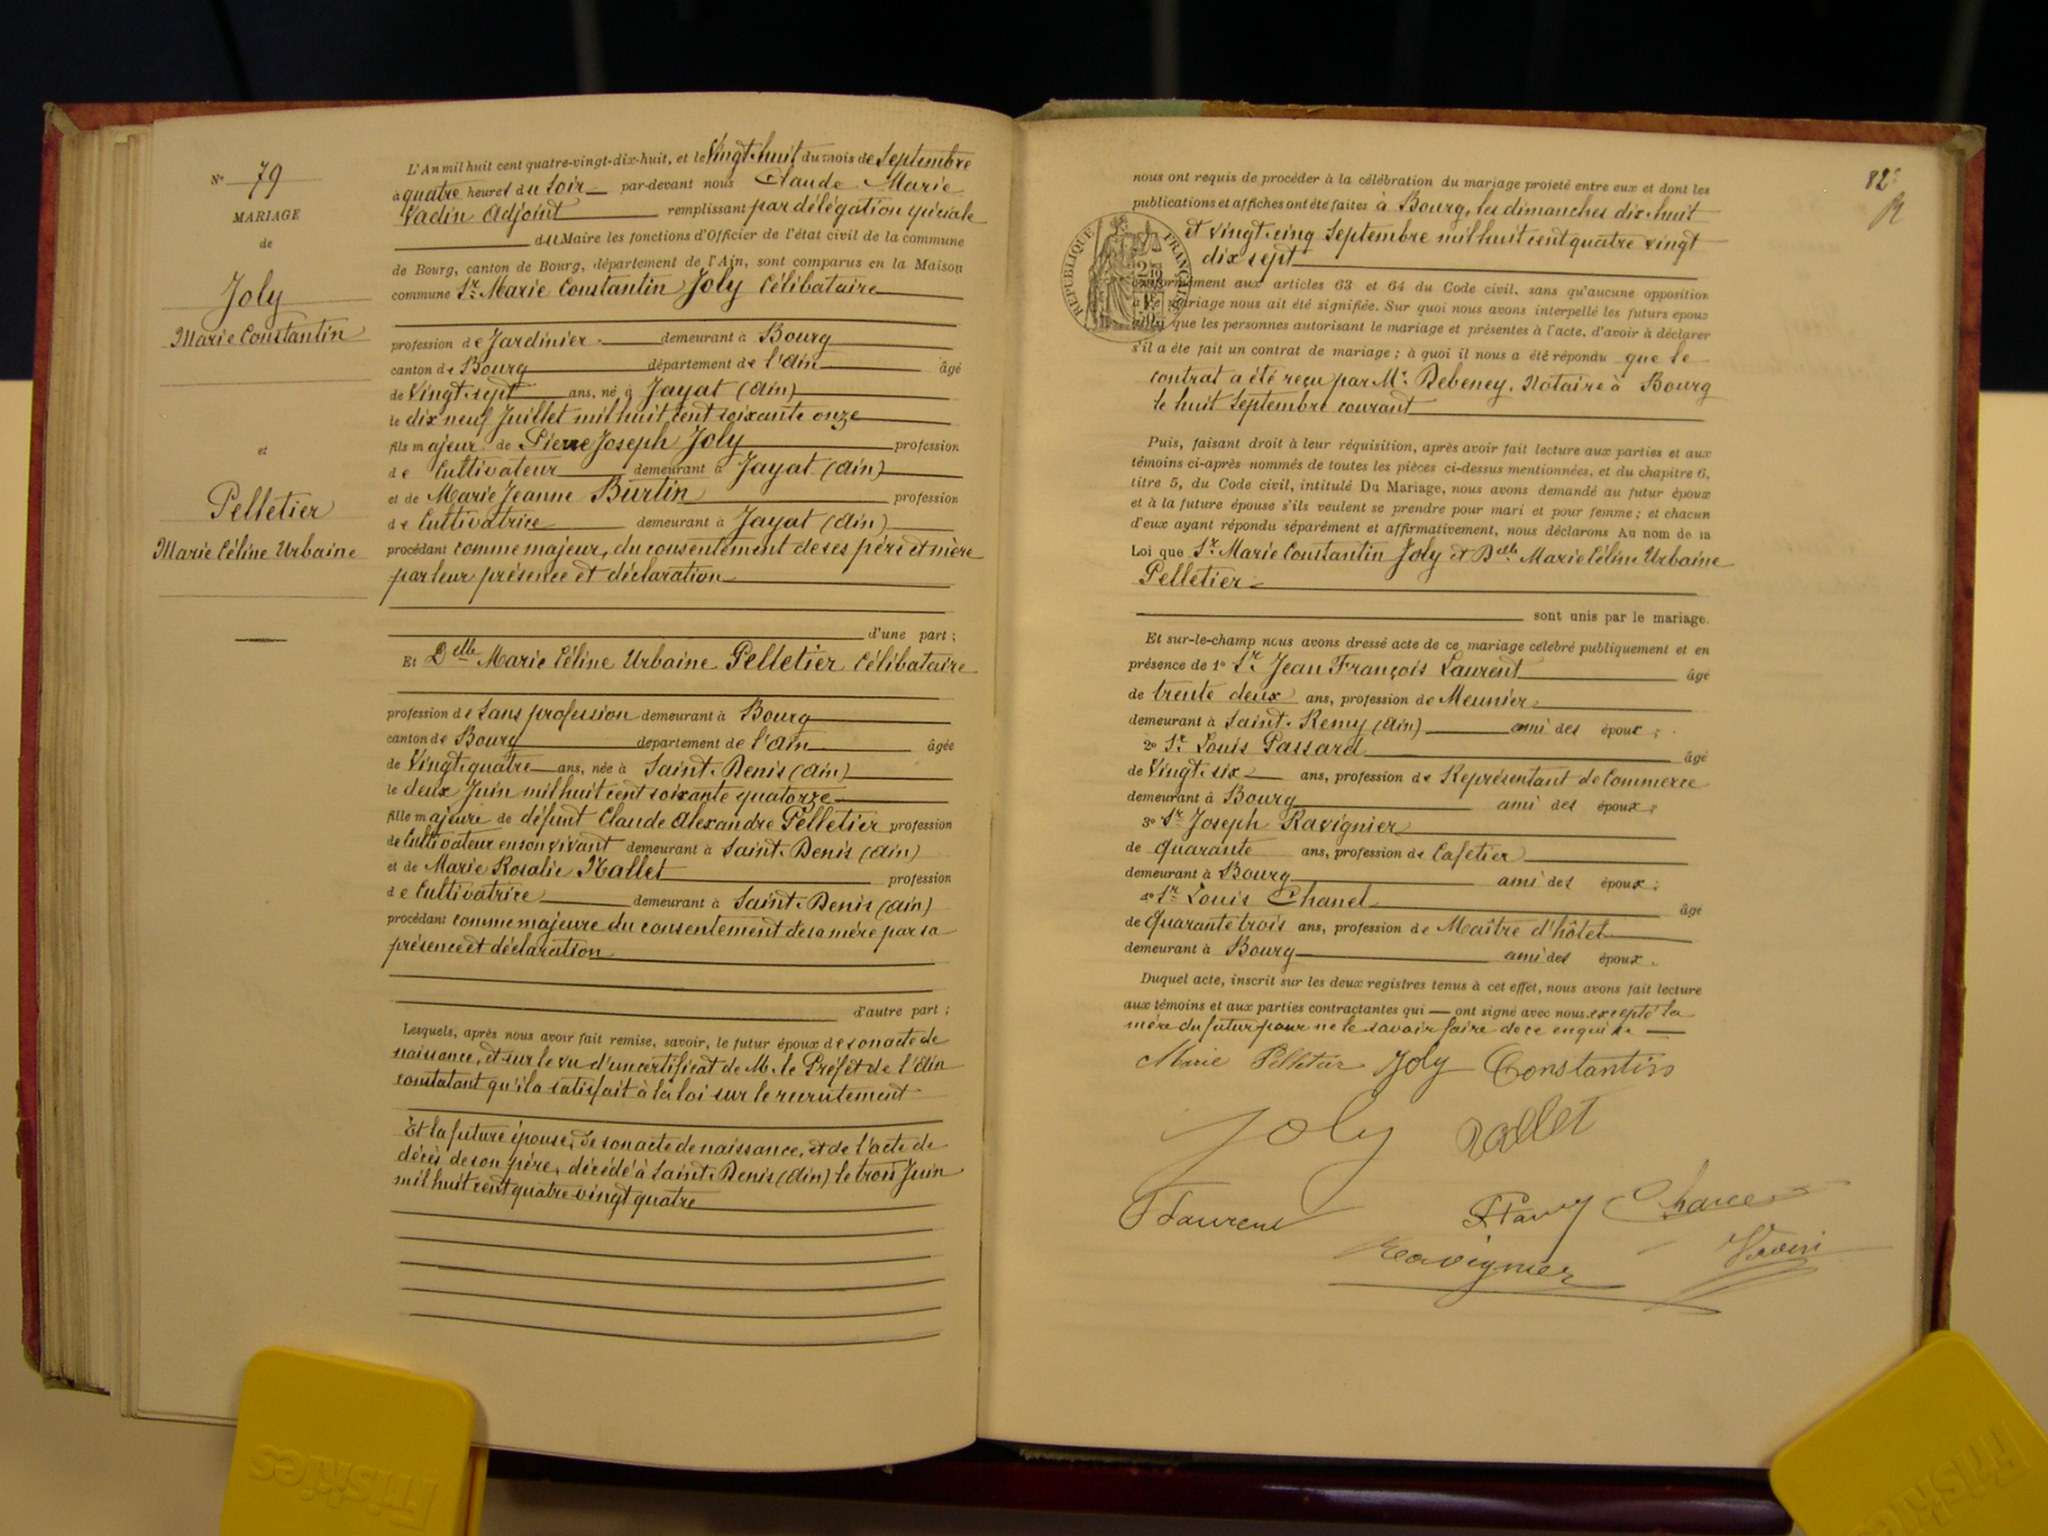 N° 79
MARIAGE
de
Joly
Marie Constantin
et
Pelletier
Marie Céline Urbaine
L'An mil huit cent quatre-vingt-dix-huit, et le Vingt-huit du mois de Septembre
à quatre heures du Soir par-devant nous Claude Marie
Vadin Adjoint remplissant par délégation spéciale
du Maire les fonctions d'Officier de l'état civil de la commune
de Bourg, canton de Bourg, département de l'Ain, sont comparus en la Maison
commune Sr. Marie Constantin Joly Célibataire
profession de Jardinier demeurant à Bourg
canton de Bourg département de l'Ain âgé
de Vingt-sept ans, né à Jayat (Ain)
le dix neuf Juillet mil huit cent soixante onze
fils majeur de Pierre Joseph Joly profession
de Cultivateur demeurant à Jayat (Ain)
et de Marie Jeanne Burtin profession
de Cultivatrice demeurant à Jayat (Ain)
procédant comme majeur, du consentement de ses père et mère
par leur présence et déclaration
d'une part ;
Et Delle Marie Céline Urbaine Pelletier Célibataire
profession de Sans profession demeurant à Bourg
canton de Bourg département de l'Ain âgée
de Vingt-quatre ans, née à Saint-Denis (Ain)
le deux Juin mil huit cent soixante quatorze
fille majeure de défunt Claude Alexandre Pelletier profession
de Cultivateur en son vivant demeurant à Saint-Denis (Ain)
et de Marie Rosalie Nallet profession
de Cultivatrice demeurant à Saint-Denis (Ain)
procédant comme majeure du consentement de sa mère par sa
présence et déclaration
d'autre part ;
Lesquels, après nous avoir fait remise, savoir, le futur époux de son acte de
naissance, et sur le vu d'un certificat de M. le Préfet de l'Ain
constatant qu'il a satisfait à la loi sur le recrutement
Et la future épouse, de son acte de naissance, et de l'acte de
décès de son père, décédé à Saint-Denis (Ain) le trois Juin
mil huit cent quatre vingt quatre
82
nous ont requis de procéder à la célébration du mariage projeté entre eux et dont les
publications et affiches ont été faites à Bourg, les dimanches dix-huit
et vingt-cinq Septembre mil huit cent quatre vingt
dix sept
RÉPUBLIQUE FRANÇAISE
conformément aux articles 63 et 64 du Code civil, sans qu'aucune opposition
à ce mariage nous ait été signifiée. Sur quoi nous avons interpellé les futurs époux
que les personnes autorisant le mariage et présentes à l'acte, d'avoir à déclarer
s'il a été fait un contrat de mariage ; à quoi il nous a été répondu que le
contrat a été reçu par Me. Debeney, Notaire à Bourg
le huit Septembre courant
Puis, faisant droit à leur réquisition, après avoir fait lecture aux parties et aux
témoins ci-après nommés de toutes les pièces ci-dessus mentionnées, et du chapitre 6,
titre 5, du Code civil, intitulé Du Mariage, nous avons demandé au futur époux
et à la future épouse s'ils veulent se prendre pour mari et pour femme ; et chacun
d'eux ayant répondu séparément et affirmativement, nous déclarons Au nom de la
Loi que Sr. Marie Constantin Joly et Delle Marie Céline Urbaine
Pelletier
sont unis par le mariage.
Et sur-le-champ nous avons dressé acte de ce mariage célébré publiquement et en
présence de 1° Sr. Jean François Laurent âgé
de trente deux ans, profession de Meunier
demeurant à Saint-Remy (Ain) ami des époux ;
2° Sr. Louis Passard âgé
de Vingt-six ans, profession de Représentant de Commerce
demeurant à Bourg ami des époux ;
3° Sr Joseph Ravignier
de quarante ans, profession de Cafetier
demeurant à Bourg ami des époux ;
4° Sr. Louis Chanel âgé
de quarante trois ans, profession de Maître d'hôtel
demeurant à Bourg ami des époux.
Duquel acte, inscrit sur les deux registres tenus à cet effet, nous avons fait lecture
aux témoins et aux parties contractantes qui ont signé avec nous excepté la
mère du futur pour ne le savoir faire de ce enquise
Marie Pelletier Joly Constantin
Joly Nallet
Laurent
Ravignier Vadin
Friskies
Friskies